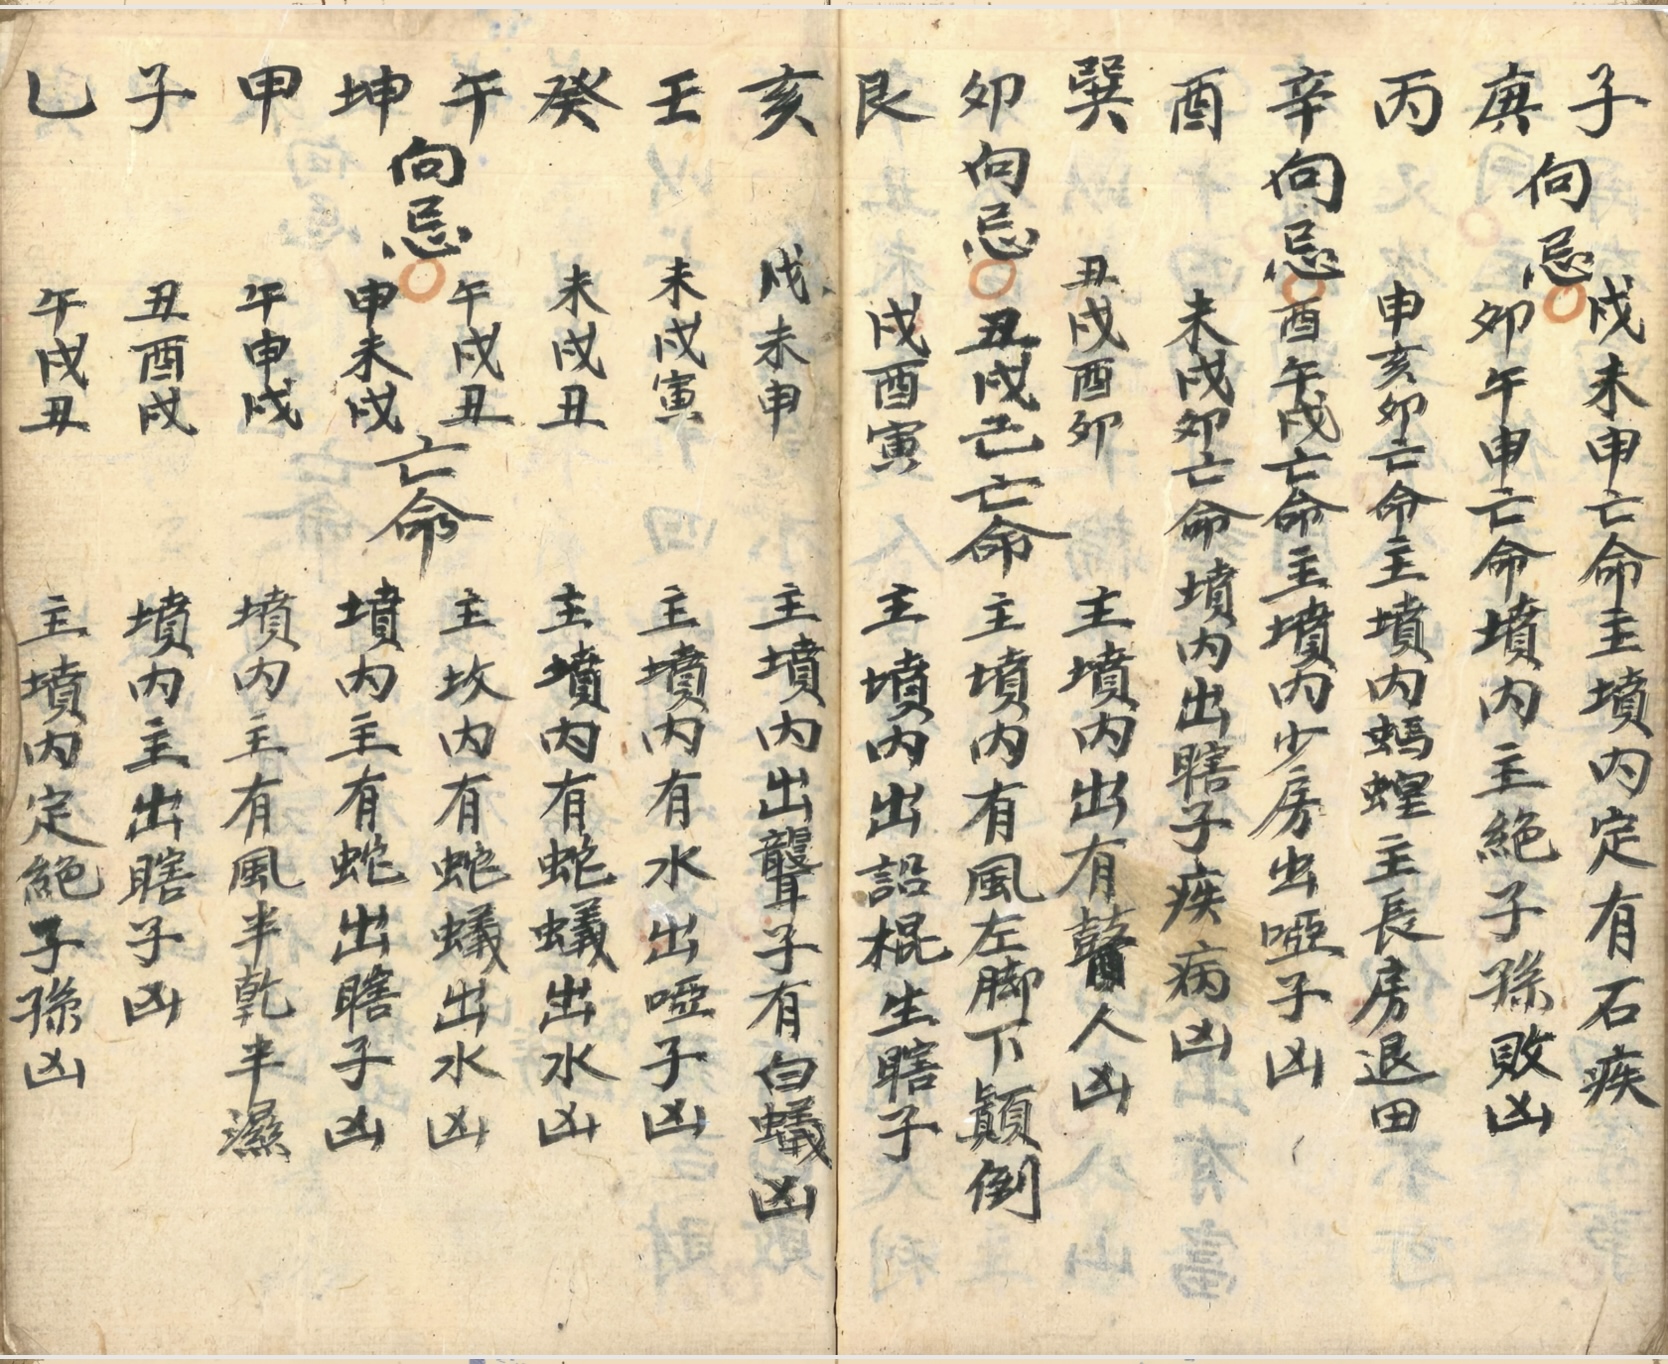 子 戌未申亡命主墳内定有石疾
向忌
庚 卯午申亡命墳内主絕子孫敗凶
丙 申亥卯亡命主墳内螞蝗主長房退田
辛向忌酉午戌亡命主墳内少房出啞子凶
酉 未戌卯亡命墳内出瞎子疾病凶
巽 丑戌酉卯 主墳内出有瞽人凶
卯向忌丑戌己亡命主墳内有風左脚下顛倒
艮 戌酉寅 主墳内出詔棍生瞎子
亥 戌未申 主墳内出聾子有白蟻凶
壬 未戌寅 主墳内有水出啞子凶
癸 未戌丑 主墳内有蛇蟻出水凶
午 午戌丑 主坟内有蛇蟻出水凶
向忌 亡命
坤 申未戌 墳内主有蛇出瞎子凶
甲 午申戌 墳内主有風半乾半濕
子 丑酉戌 墳内主出瞎子凶
乙 午戌丑 主墳内定絕子孫凶